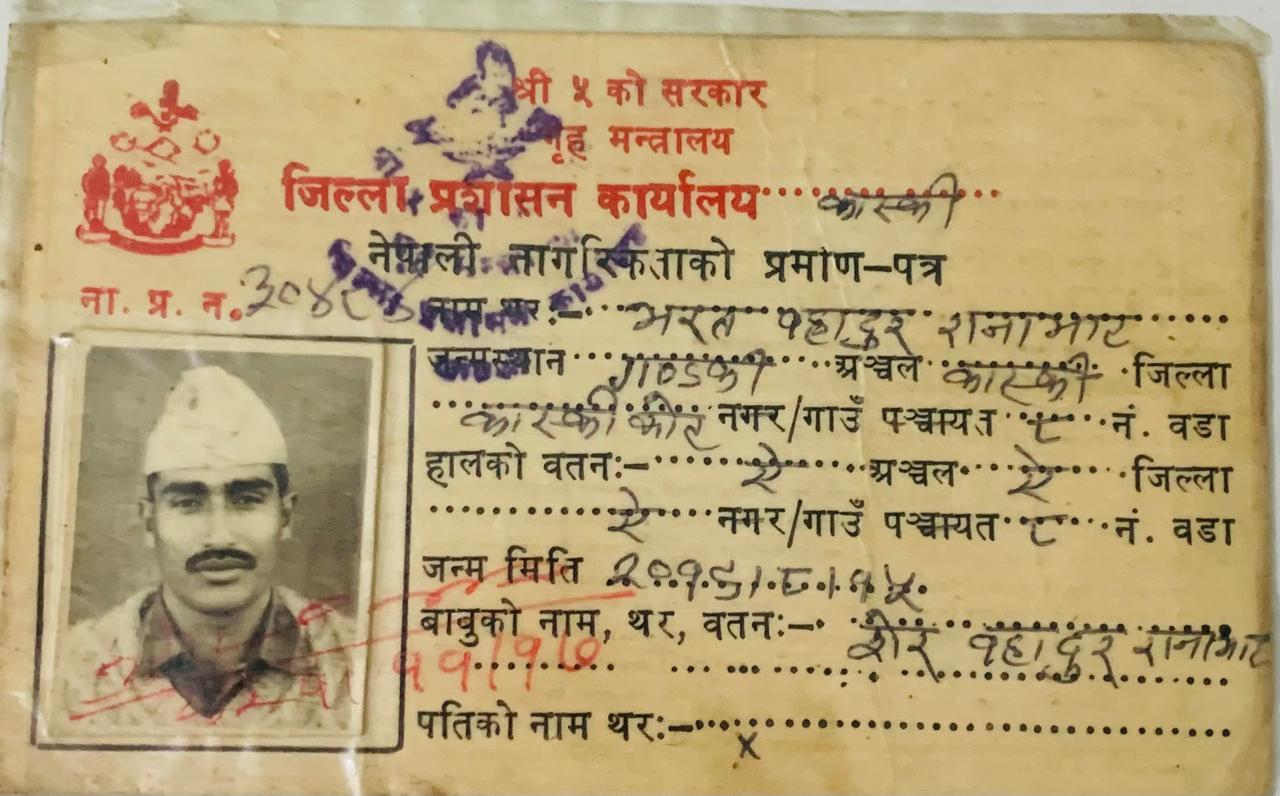 श्री ५ को सरकार
गृह मन्त्रालय
जिल्ला प्रशासन कार्यालय कास्की
नेपाली नागरिकताको प्रमाण-पत्र
ना. प्र. न.
नाम थर:- भरत वहादुर रानाभाट
जन्मस्थान गण्डकी अञ्चल कास्की जिल्ला
कास्कीकोट नगर/गाउँ पञ्चायत ८ नं. वडा
हालको वतन:- ऐ अञ्चल ऐ जिल्ला
ऐ नगर/गाउँ पञ्चायत ८ नं. वडा
जन्म मिति
बाबुको नाम, थर, वतन:- शेर वहादुर रानाभाट
पतिको नाम थर:- x